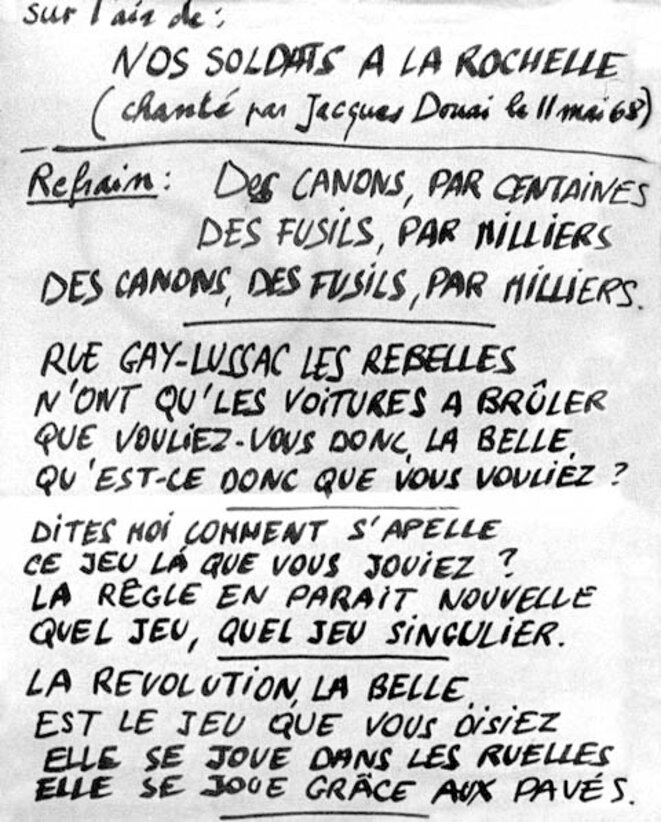 sur l'air de :
NOS SOLDATS A LA ROCHELLE
(chanté par Jacques Douai le 11 mai 68)
Refrain : Des CANONS, PAR CENTAINES
DES FUSILS, PAR MILLIERS
DES CANONS, DES FUSILS, PAR MILLIERS.
RUE GAY-LUSSAC LES REBELLES
N'ONT QU'LES VOITURES A BRÛLER
QUE VOULIEZ-VOUS DONC, LA BELLE,
QU'EST-CE DONC QUE VOUS VOULIEZ ?
DITES MOI COMMENT S'APELLE
CE JEU LÀ QUE VOUS JOUIEZ ?
LA RÊGLE EN PARAIT NOUVELLE
QUEL JEU, QUEL JEU SINGULIER.
LA REVOLUTION, LA BELLE,
EST LE JEU QUE VOUS DISIEZ
ELLE SE JOUE DANS LES RUELLES
ELLE SE JOUE GRÂCE AUX PAVÉS.